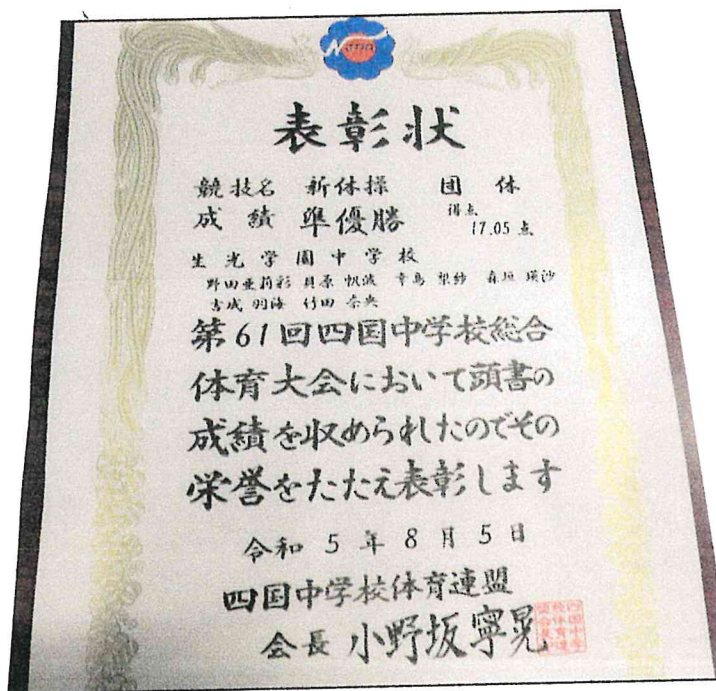 表彰状
競技名 新体操 団体
成績 準優勝 得点 17.05点
生光学園中学校
野田亜莉彩 貝原帆波 幸島梨紗 森垣瑛沙
吉成羽海 竹田奈央
第61回四国中学校総合
体育大会において頭書の
成績を収められたのでその
栄誉をたたえ表彰します
令和5年8月5日
四国中学校体育連盟
会長 小野坂寧晃